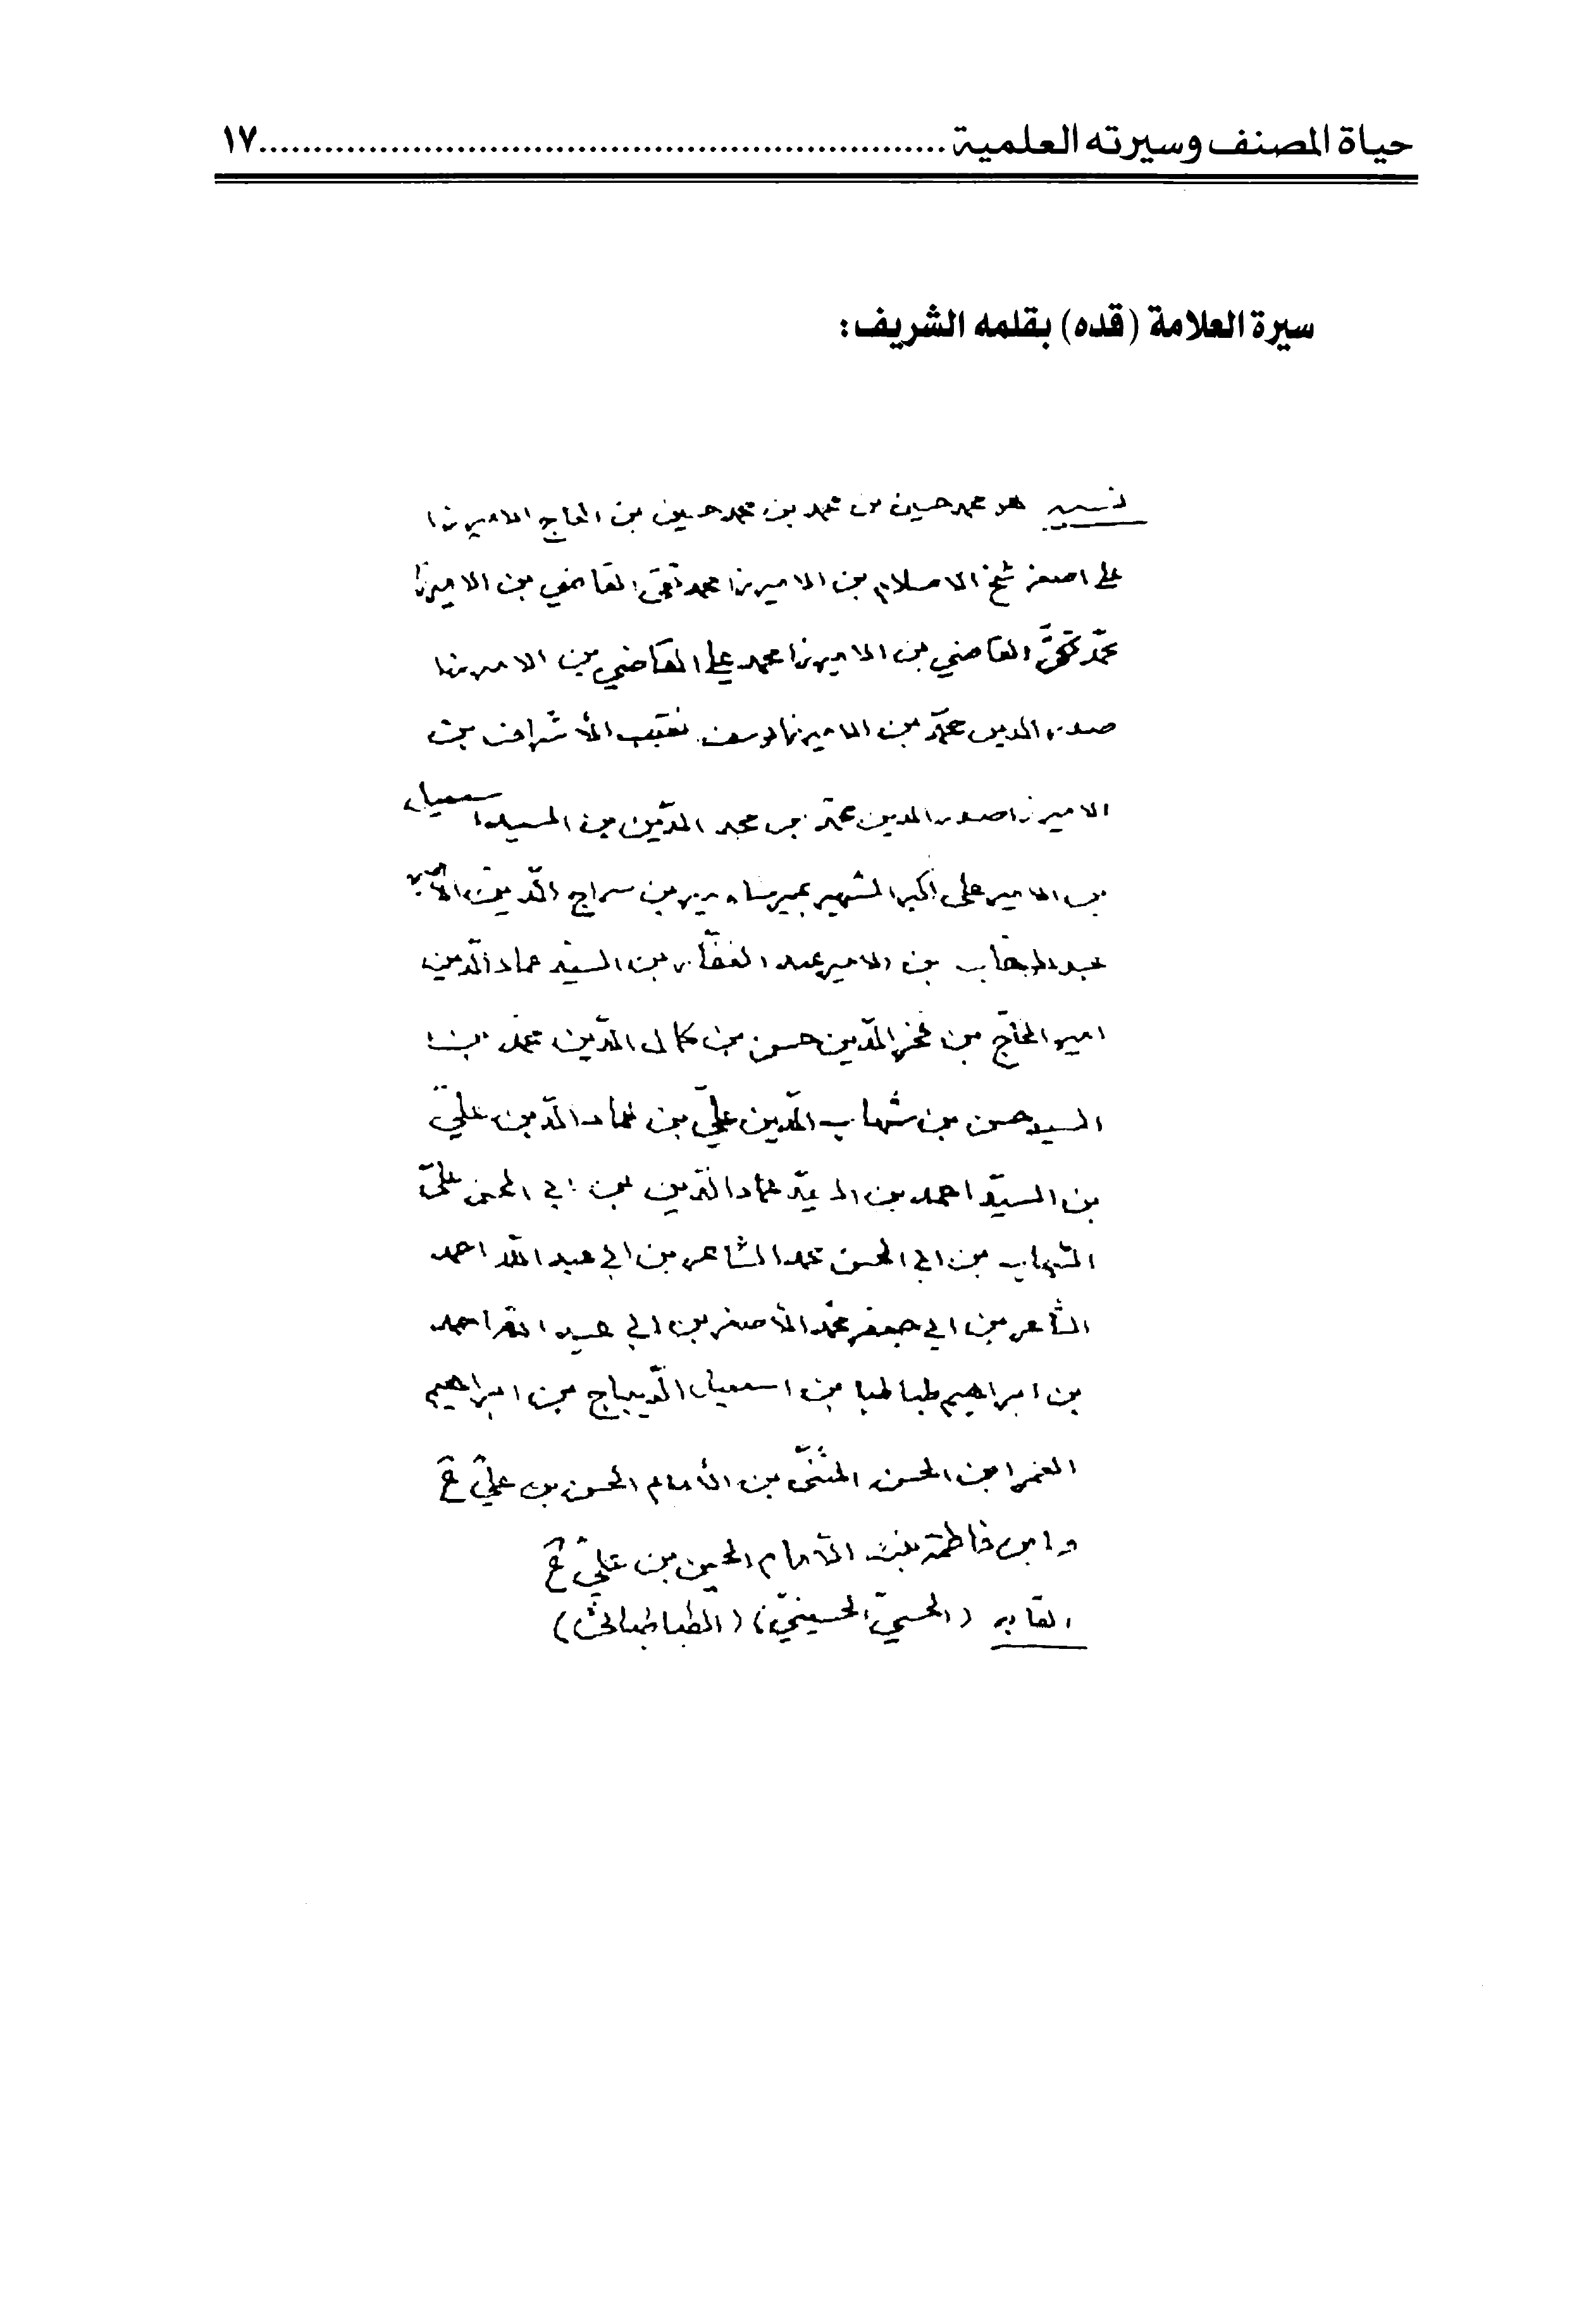 حياة المصنف وسيرته العلمية ................................................................ ١٧
سيرة العلامة (قده) بقلمه الشريف:
نسبه هو محمد حسين بن محمد بن محمد حسين بن الحاج الاميرزا
علي اصغر شيخ الاسلام بن الاميرزا محمد تقي القاضي بن الاميرزا
محمّد القاضي بن الاميرزا محمد علي القاضي بن الاميرزا
صدر الدين محمّد بن الاميرزا يوسف نقيب الأشراف بن
الاميرزا صدر الدين محمّد بن مجد الدّين بن السيد اسمعيل
بن الامير علي اكبر الشهير بمير شاه مير بن سراج الدّين الأمير
عبد الوهّاب بن الامير عبد الغفّار بن السيّد عماد الدّين
امير الحاّج بن فخر الدّين حسن بن كمال الدّين محمّد بن
السيد حسن بن شهاب الدّين عليّ بن عماد الدّين عليّ
بن السيّد احمد بن السيّد عماد الدّين بن ابي الحسن عليّ
الشّهاب بن ابي الحسن محمد الشاعر بن ابي عبد اللّه احمد
الشّاعر بن ابي جعفر محمّد الأصغر بن ابي عبد اللّه احمد
بن ابراهيم طباطبا بن اسمعيل الدّيباج بن ابراهيم
الغمر ابن الحسن المثنّى بن الأمام الحسن بن عليّ ع
وابن فاطمة بنت الأمام الحسين بن عليّ ع
القابه (الحسنيّ الحسينيّ) (الطّباطبائيّ)